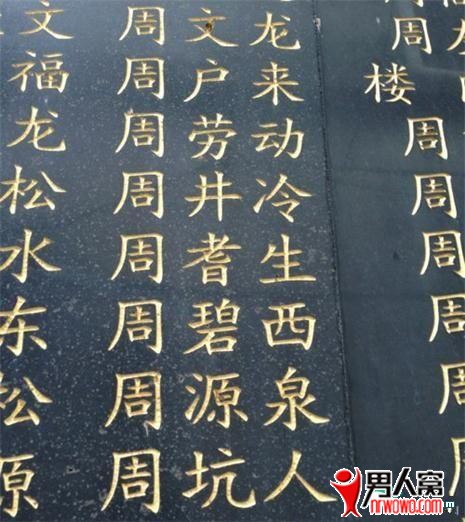 文 周文龙 周
福 周户来 楼
龙 周劳动 周
松 周井冷 周
水 周耆生 周
东 周碧西 周
松 周源泉 周
周坑人 周
男人窝
nrwowo.com